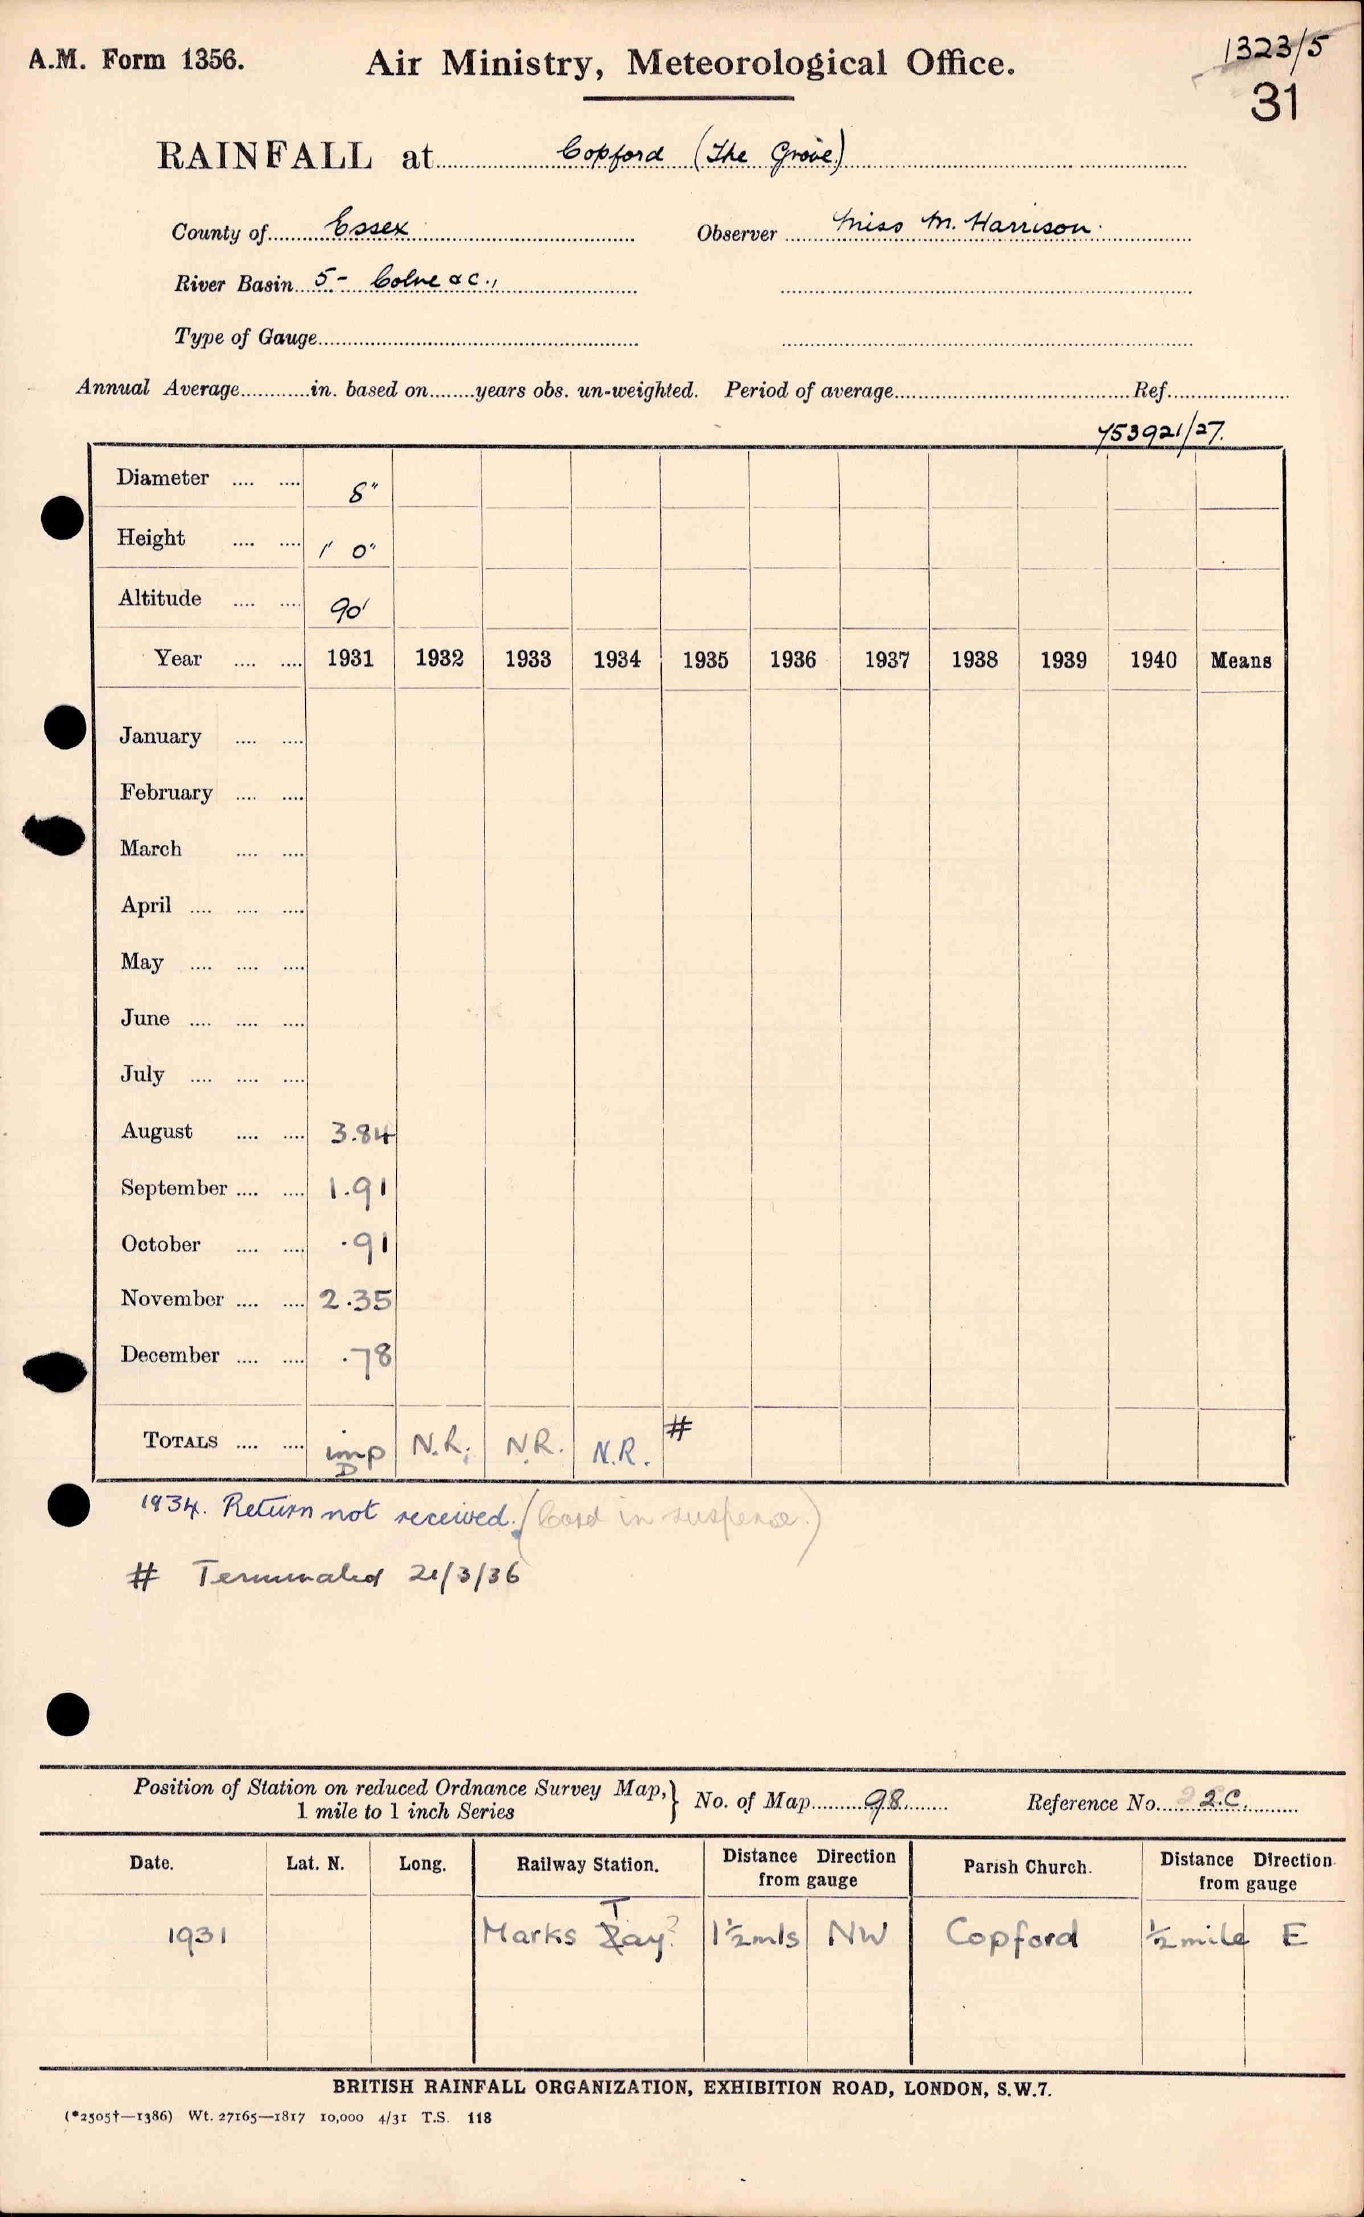 A.M. Form 1356.
Air Ministry, Meteorological Office.
1323/5
31
RAINFALL at Copford (The Grove)
County of Essex Observer Miss M. Harrison.
River Basin 5- Colne &c.,
Type of Gauge
Annual Average in. based on years obs. un-weighted. Period of average Ref.
753921/27.
Diameter 8"
Height 1' 0"
Altitude 90'
Year 1931 1932 1933 1934 1935 1936 1937 1938 1939 1940 Means
January
February
March
April
May
June
July
August 3.84
September 1.91
October .91
November 2.35
December .78
TOTALS imp N.R. N.R. N.R. #
D
1934. Return not received. (Card in suspense.)
# Terminated 21/3/36
Position of Station on reduced Ordnance Survey Map, } No. of Map 98 Reference No. 2.C.
1 mile to 1 inch Series
Date. Lat. N. Long. Railway Station. Distance Direction from gauge Parish Church. Distance Direction from gauge
T
1931 Marks Zay? 1½ mls NW Copford ½ mile E
BRITISH RAINFALL ORGANIZATION, EXHIBITION ROAD, LONDON, S.W.7.
(*2505†—1386) Wt. 27165—1817 10,000 4/31 T.S. 118